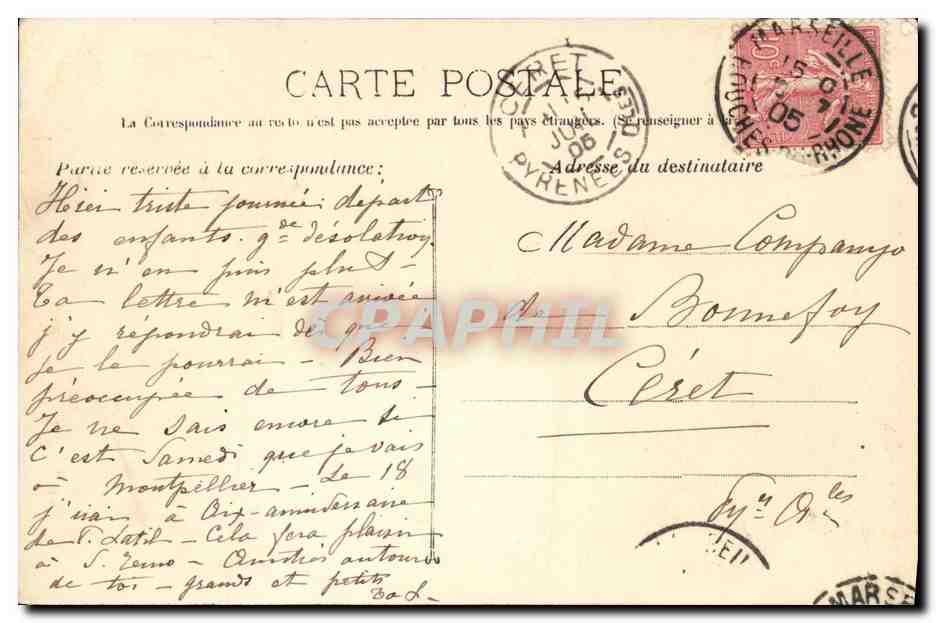 CARTE POSTALE
La Correspondance au recto n'est pas acceptée par tous les pays étrangers. (Se renseigner à la
Partie réservée à la correspondance:
Adresse du destinataire
Hier triste journée départ
des enfants. gde désolation
Je n'en puis plus -
Ta lettre m'est arrivée
j'y répondrai dès que
je le pourrai - Bien
préoccupée de tous -
Je ne sais encore si
c'est Samedi que je vais
à Montpellier - Le 18
j'irai à Aix - anniversaire
de P. Latil - Cela fera plaisir
à - Amitiés autour
de toi - grands et petits
Madame Companyo
de Bonnefoy
Céret
Pyr Ales
CERET
PYRENEES
05
MARSEILLE
BOUCHES-DU-RHONE
15
05
CPAPHIL
EIL
MARSE